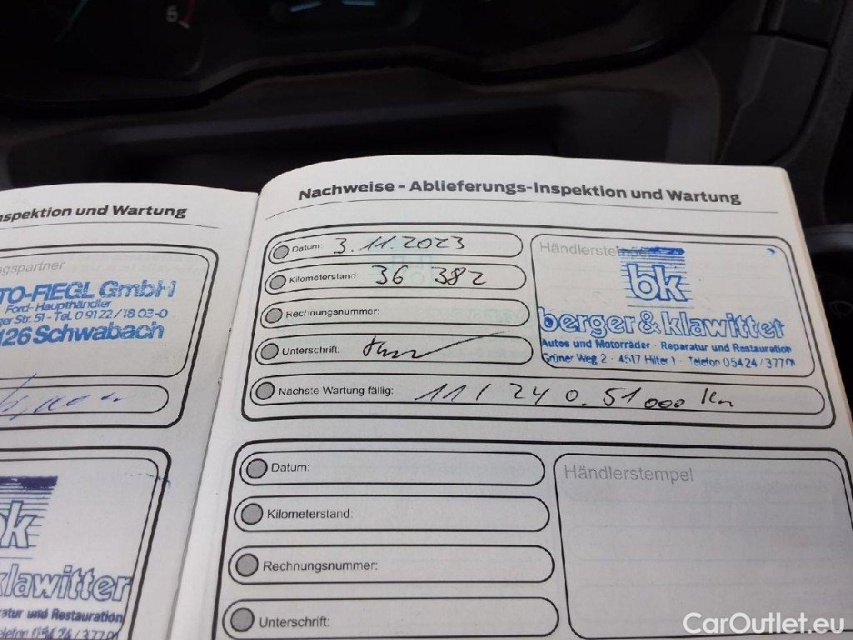 6
nspektion und Wartung
gspartner
TO-FIEGL GmbH
Ford-Haupthändler
ger Str. 51 - Tel. 0 91 22 / 18 03-0
126 Schwabach
k
klawitter
ratur und Restauration
elefon 05424/3770
Nachweise - Ablieferungs-Inspektion und Wartung
Datum: 3.11.2023
Kilometerstand: 36 382
Rechnungsnummer:
Unterschrift:
Nächste Wartung fällig: 11/24 o. 51000 Km
Händlerstempel
bk
berger & klawitter
Autos und Motorräder · Reparatur und Restauration
Grüner Weg 2 - 4517 Hilter 1 · Telefon 05424/3770
Datum:
Kilometerstand:
Rechnungsnummer:
Unterschrift:
Händlerstempel
CarOutlet.eu